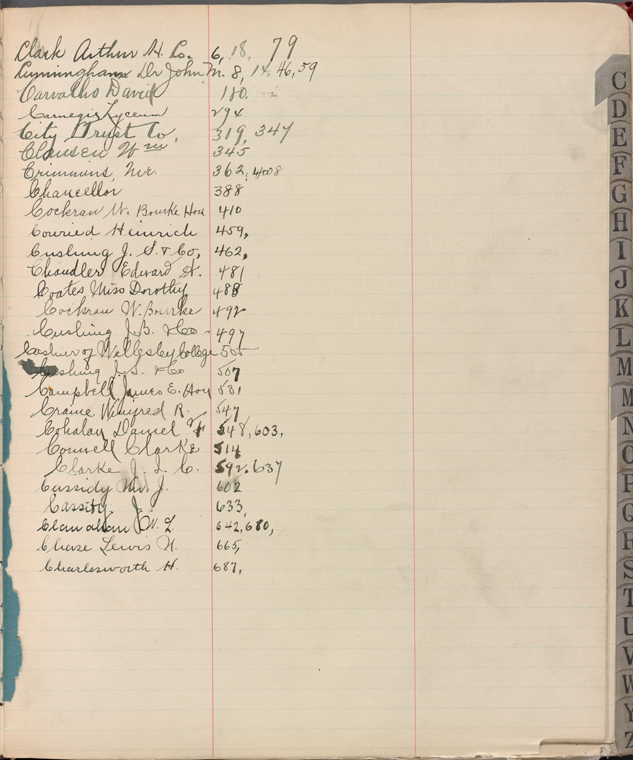 Clark Arthur H. Co. 6, 18, 79
Cunningham Dr John M. 8, 14, 46, 59
Carvalho David 180
Carnegie Lyceum 294
City Trust Co, 319, 347
Clausen Wm 345
Crimmins, Mr. 362, 408
Chancellor 388
Cockran W. Bourke Hon 410
Conried Heinrich 459,
Cushing J. S. & Co, 462,
Chandler Edward H. 481
Coates, Miss Dorothy 488
Cockran W. Bourke 492
Cushing J. S. & Co - 497
Cashier of Wellesley College 505
Cushing J. S. & Co 507
Campbell James E. Hon 531
Crane Winfred R. 547
Cohalan Daniel F 548, 603,
Connell Clarke 514
Clarke J. I. C. 592, 637
Cassidy Mr. J. 602
Cassidy J. 633,
W. L. 642, 680,
Chase Lewis N. 665,
Charlesworth H. 687,
C
D
E
F
G
H
I
J
K
L
M
M
N
O
P
Q
R
S
T
U
V
W
Y
Z